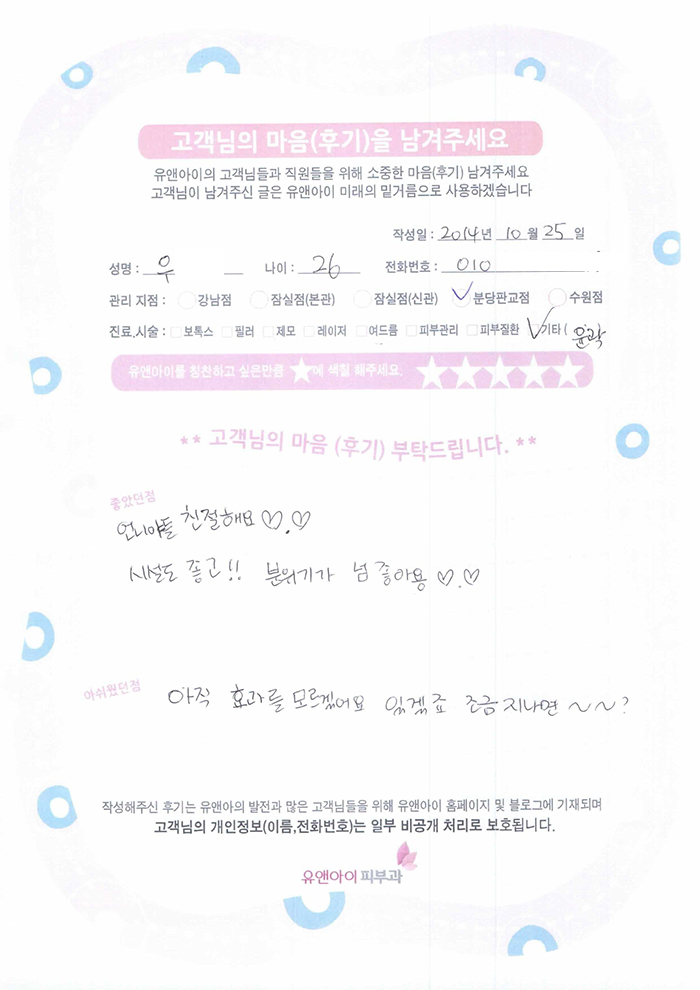 고객님의 마음(후기)을 남겨주세요
유앤아이의 고객님들과 직원들을 위해 소중한 마음(후기) 남겨주세요
고객님이 남겨주신 글은 유앤아이 미래의 밑거름으로 사용하겠습니다
작성일 : 2014년 10 월 25 일
성명 : 우 나이 : 26 전화번호 : 010
관리 지점 : 강남점 잠실점(본관) 잠실점(신관) 분당판교점 수원점
진료.시술 : 보톡스 필러 제모 레이저 여드름 피부관리 피부질환 기타 ( 윤곽
유앤아이를 칭찬하고 싶은만큼 ★에 색칠 해주세요. ★★★★★
** 고객님의 마음 (후기) 부탁드립니다. **
좋았던점
언니야들 친절해요 ♡.♡
시설도 좋고!! 분위기가 넘 좋아용 ♡.♡
아쉬웠던점 아직 효과를 모르겠어요 있겠죠 조금 지나면 ~~?
작성해주신 후기는 유앤아의 발전과 많은 고객님들을 위해 유앤아이 홈페이지 및 블로그에 기재되며
고객님의 개인정보(이름,전화번호)는 일부 비공개 처리로 보호됩니다.
유앤아이 피부과